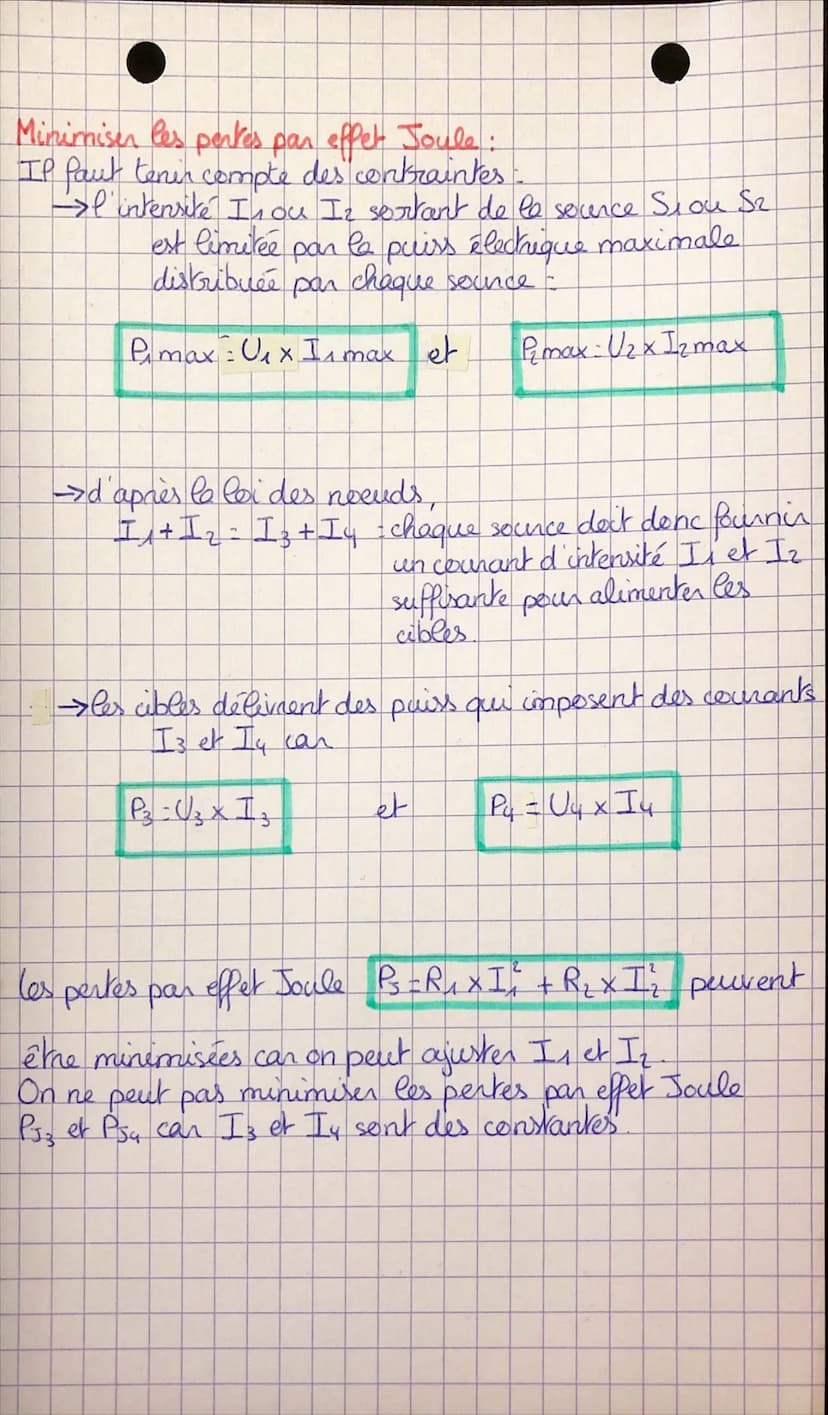 Minimiser les pertes par effet Joule :
Il faut tenir compte des contraintes :
→ l'intensité I1 ou I2 sortant de la source S1 ou S2
est limitée par la puiss électrique maximale
distribuée par chaque source :
P1 max = U1 x I1 max et P2 max = U2 x I2 max
→ d'après la loi des noeuds,
I1 + I2 = I3 + I4 : chaque source doit donc fournir
un courant d'intensité I1 et I2
suffisante pour alimenter les
cibles.
→ les cibles délivrent des puiss qui imposent des courants
I3 et I4 car
P3 = U3 x I3 et P4 = U4 x I4
les pertes par effet Joule PJ = R1 x I1² + R2 x I2² peuvent
être minimisées car on peut ajuster I1 et I2.
On ne peut pas minimiser les pertes par effet Joule
PJ3 et PJ4 car I3 et I4 sont des constantes.